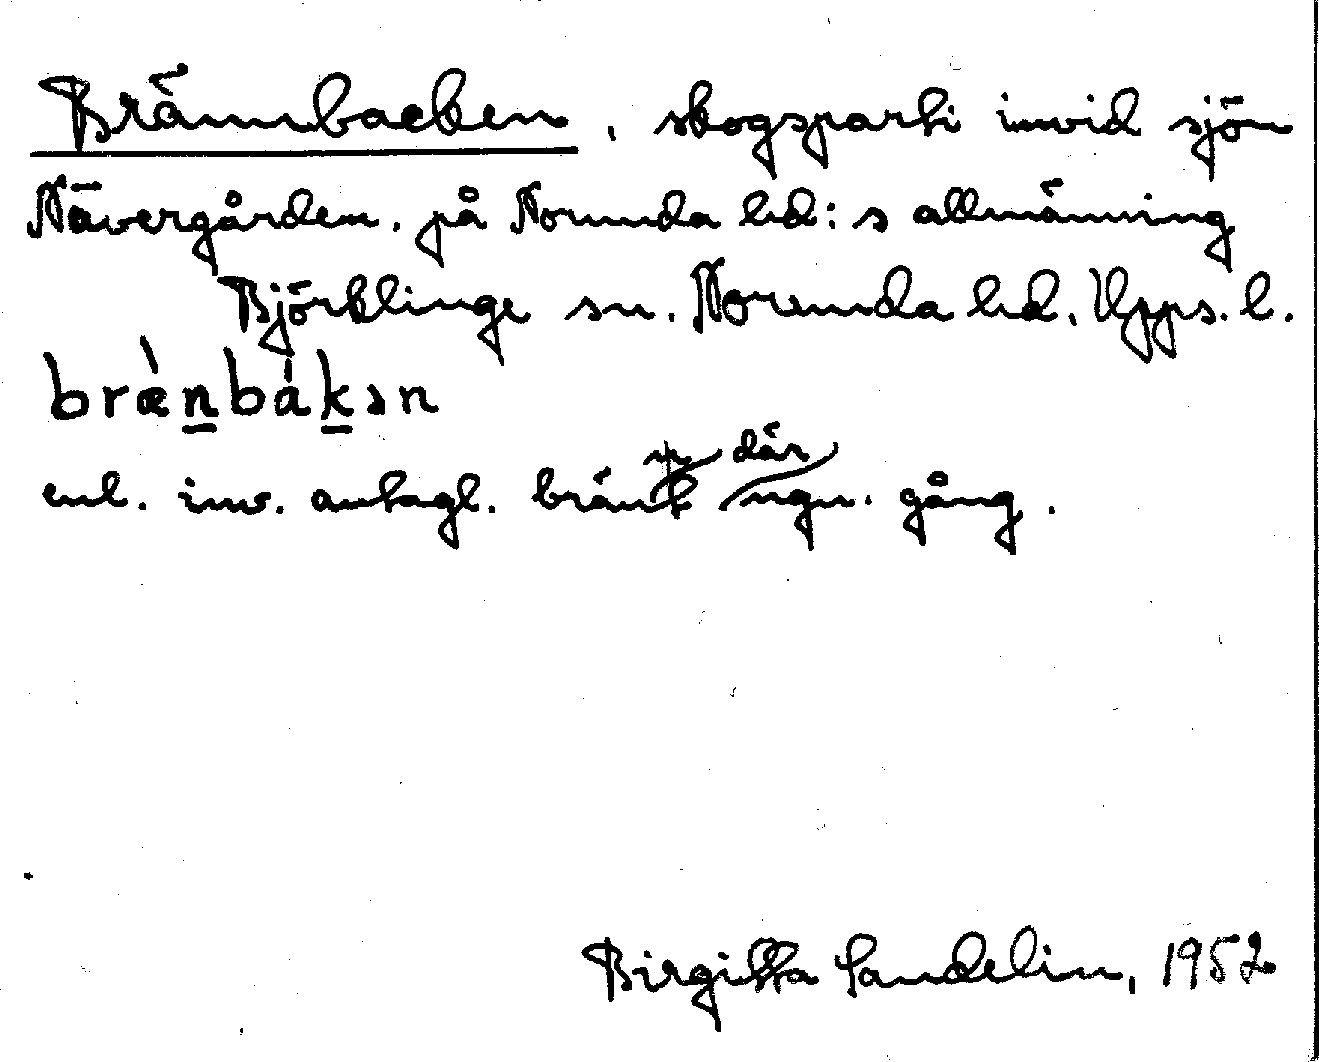 Brännbacken, skogsparti invid sjön
Nävergården, på Norunda hd:s allmänning
Björklinge sn. Norunda hd, Upps. l.
bræ̀n̲bák̲ən
enl. inv. antagl. bränt där ngn. gång.
Birgitta Sandelin, 1952